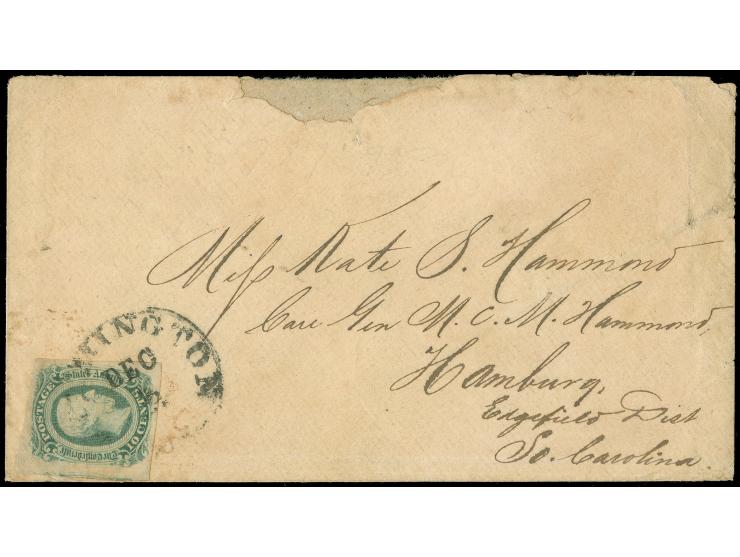 Miss Kate S. Hammond
Care Gen M. C. M. Hammond,
Hamburg,
Edgefield Dist
So. Carolina
MINGTON
DEC
POSTAGE
TEN CENTS
The Confederate
States